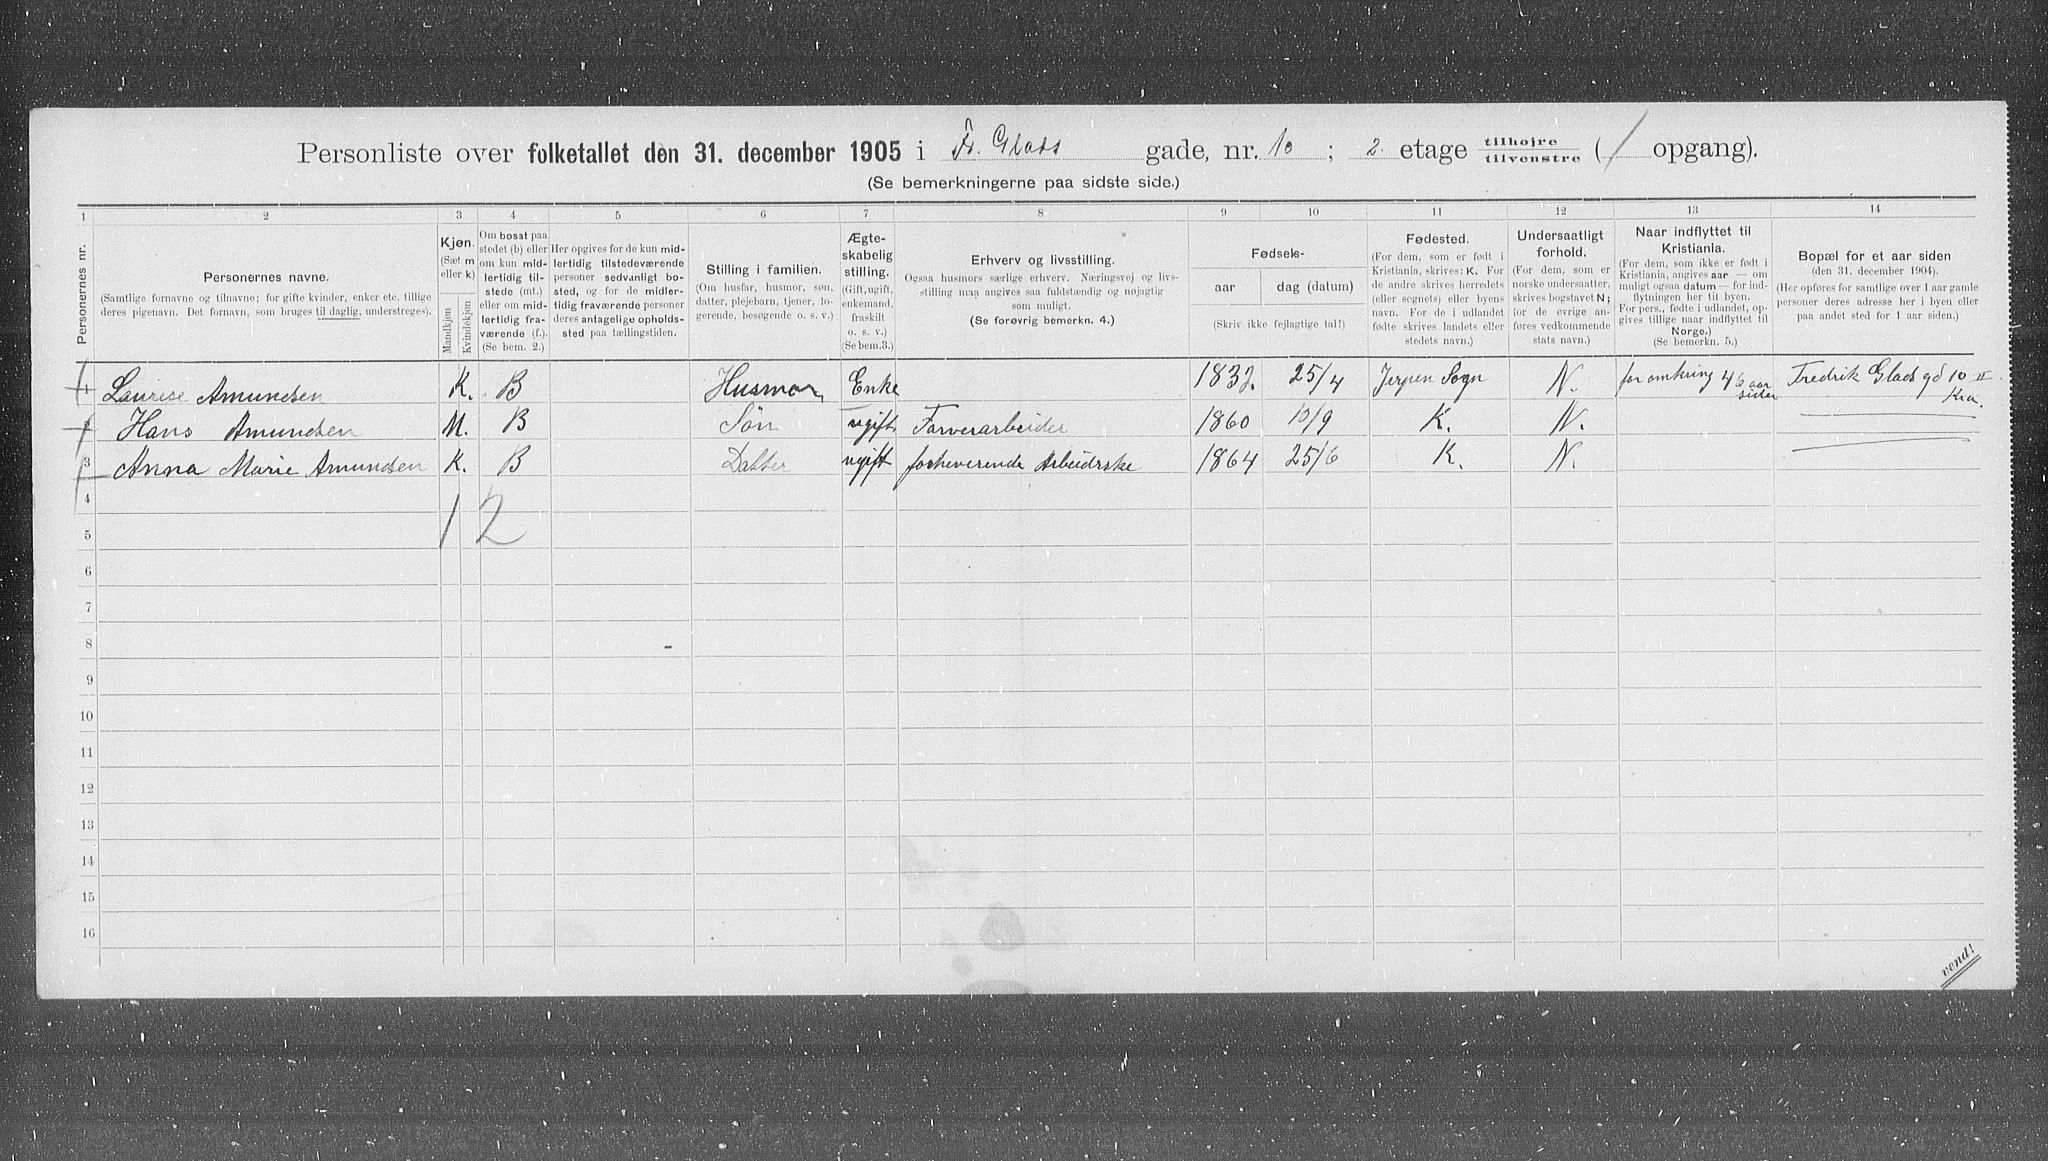 Personliste over folketallet den 31. december 1905 i Fr. Glads gade, nr. 10 ; 2. etage tilhøjre / tilvenstre ( / opgang).
(Se bemerkningerne paa sidste side.)
1 2 3 4 5 6 7 8 9 10 11 12 13 14
Personernes nr.
Personernes navne.
(Samtlige fornavne og tilnavne; for gifte kvinder, enker etc. tillige
deres pigenavn. Det fornavn, som bruges til daglig, understreges).
Kjøn.
(Sæt m
eller k)
Mandkjøn
Kvindekjøn
Om bosat paa
stedet (b) eller
om kun mid-
lertidig til-
stede (mt.)
eller om mid-
lertidig fra-
værende (f.).
(Se bem. 2.)
Her opgives for de kun mid-
lertidig tilstedeværende
personer sedvanligt bo-
sted, og for de midler-
tidig fraværende personer
deres antagelige opholds-
sted paa tællingstiden.
Stilling i familien.
(Om husfar, husmor, søn,
datter, plejebarn, tjener, lo-
gerende, besøgende o. s. v.)
Ægte-
skabelig
stilling.
(Gift, ugift,
enkemand,
fraskilt
o. s. v.)
(Se bem.3.)
Erhverv og livsstilling.
Ogsaa husmors særlige erhverv. Næringsvej og livs-
stilling maa angives saa fuldstændig og nøjagtig
som muligt.
(Se forøvrig bemerkn. 4.)
Fødsels-
aar
dag (datum)
(Skriv ikke fejlagtige tal!)
Fødested.
(For dem, som er født i
Kristiania, skrives: K. For
de andre skrives herredets
(eller sognets) eller byens
navn. For de i udlandet
fødte skrives landets eller
stedets navn.)
Undersaatligt
forhold.
(For dem, som er
norske undersaatter,
skrives bogstavet N;
for de øvrige an-
føres vedkommende
stats navn.)
Naar indflyttet til
Kristiania.
(For dem, som ikke er født i
Kristiania, angives aar — om
muligt ogsaa datum — for ind-
flytningen her til byen.
For pers., fødte i udlandet, op-
gives tillige naar indflyttet til
Norge.)
(Se bemerkn. 5.)
Bopæl for et aar siden
(den 31. december 1904).
(Her opføres for samtlige over 1 aar gamle
personer deres adresse her i byen eller
paa andet sted for 1 aar siden.)
1 Laurise Amundsen K. B Husmor Enke 1832. 25/4 Sogn N. for omkring 46 aar siden Fredrik Glads gd 10 II Kra.
2 Hans Amundsen M. B Søn ugift Farverarbeider 1860 10/9 K. N.
3 Anna Marie Amundsen K. B Datter ugift forheverende Arbeidrske 1864 25/6 K. N.
4
1 2
5
6
7
8
9
10
11
12
13
14
15
16
vend!